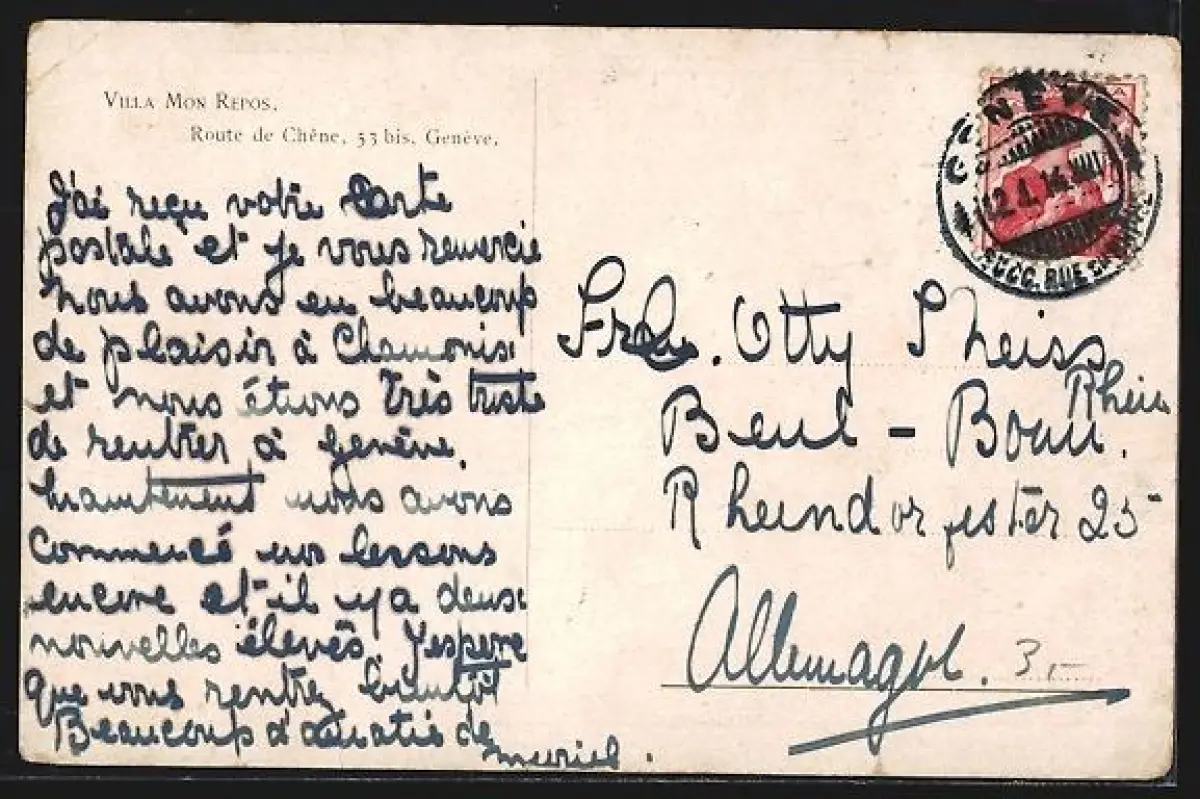 VILLA MON REPOS,
Route de Chêne, 53 bis, Genève.
J'ai reçu votre carte
postale et je vous remercie
Nous avons eu beaucoup
de plaisir à Chamonix
et nous étions très triste
de rentrer à Genève.
Maintenant nous avons
commencé nos lessons
encore et il y a deux
nouvelles élevês. J'espere
que vous rentrez bientôt
Beaucoup d'amatié de
muriel.
GENÈVE
12.1.14. VIII
SUCC. RUE
Otty Theiss
Beul - Bonn. Rhein
Rheindorfester 25
Allemagne.
3.-